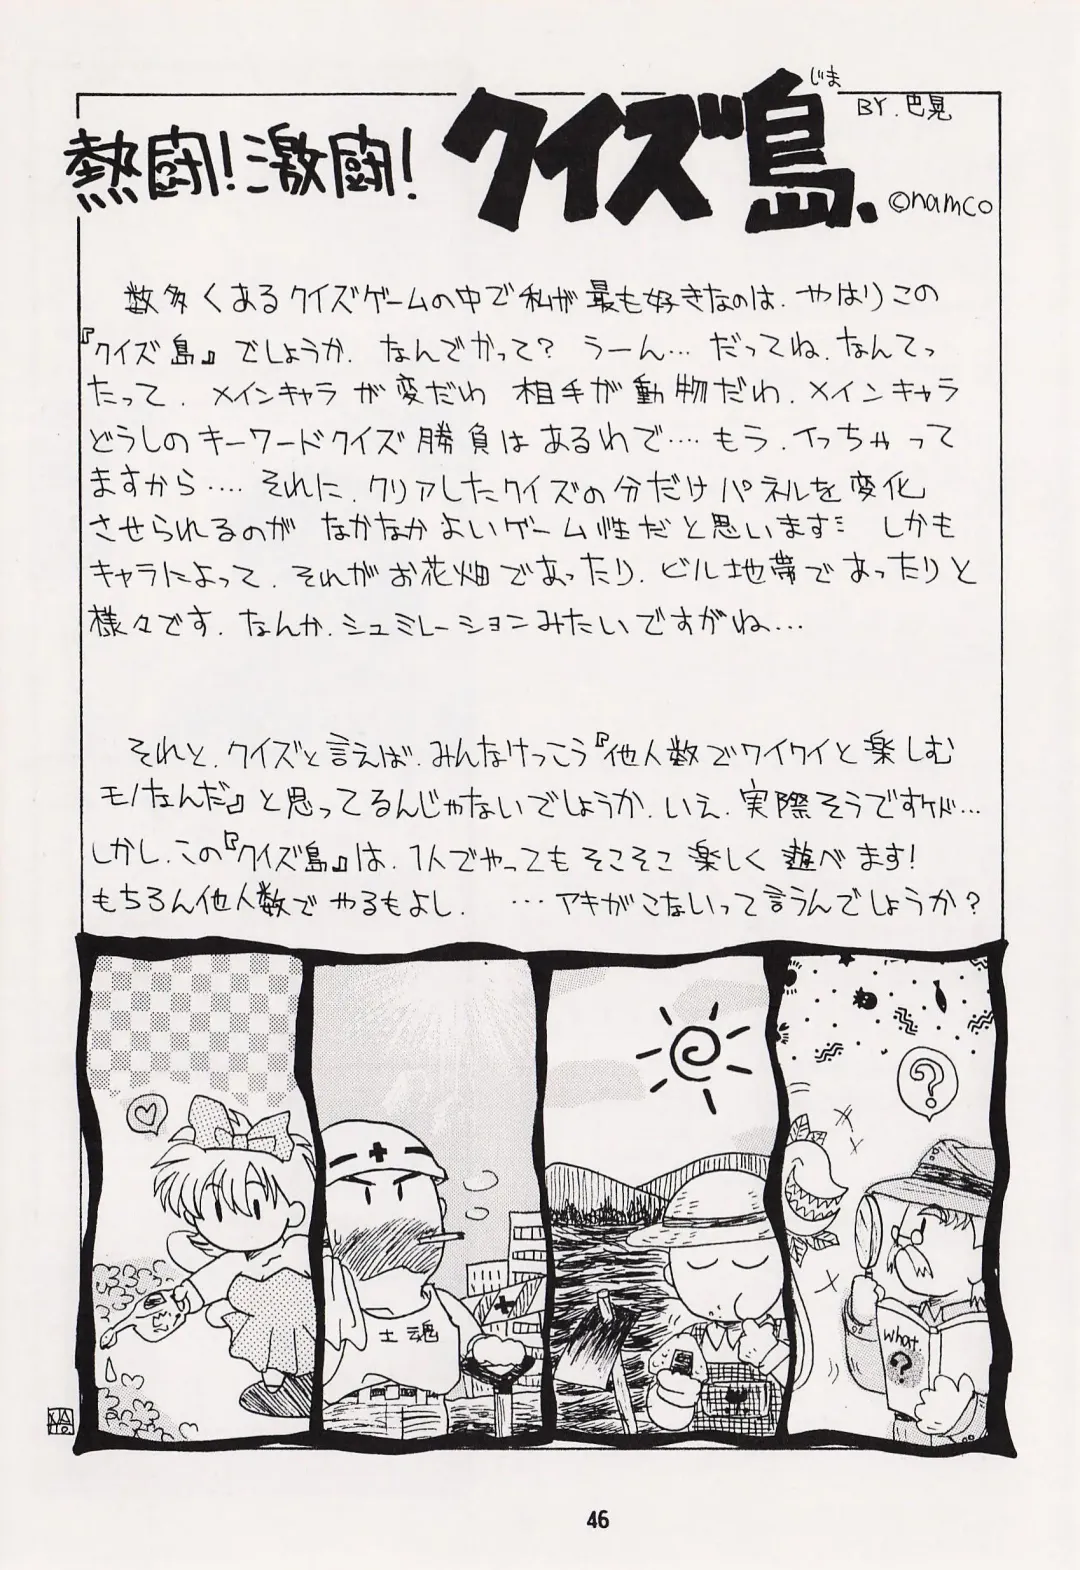 熱闘!激闘!クイズ島.
じま
BY.巴晃
©namco
数多くあるクイズゲームの中で私が最も好きなのは.やはりこの
『クイズ島』でしょうか.なんでかって?うーん…だってね.なんてっ
たって.メインキャラが変だわ 相手が動物だわ.メインキャラ
どうしのキーワードクイズ勝負はあるわで‥‥もう.イっちゃって
ますから‥‥それに.クリアしたクイズの分だけパネルを変化
させられるのが なかなかよいゲーム性だと思います… しかも
キャラによって.それがお花畑であったり.ビル地帯であったりと
様々です.なんか.シュミレーションみたいですがね…
それと.クイズと言えば.みんなけっこう『他人数でワイワイと楽しむ
モノなんだ』と思ってるんじゃないでしょうか.いえ.実際そうですけど…
しかし.この『クイズ島』は.1人でやってもそこそこ楽しく遊べます!
もちろん他人数でやるもよし. …アキがこないって言うんでしょうか?
?
士魂
What
?
46